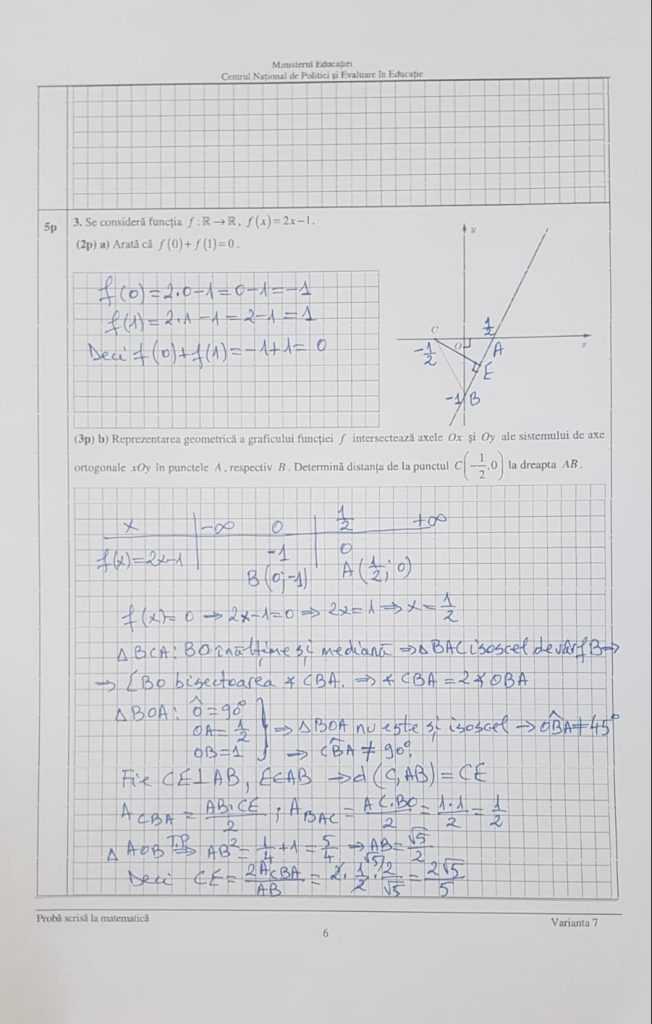 Ministerul Educației
Centrul Național de Politici și Evaluare în Educație
5p
3. Se consideră funcția f : ℝ → ℝ, f(x) = 2x − 1.
(2p) a) Arată că f(0) + f(1) = 0.
f(0) = 2·0−1 = 0−1 = −1
f(1) = 2·1 −1 = 2−1 = 1
Deci f(0)+f(1) = −1+1 = 0
y
C
O
1/2
x
−1/2
A
E
−1
B
(3p) b) Reprezentarea geometrică a graficului funcției f intersectează axele Ox și Oy ale sistemului de axe
ortogonale xOy în punctele A, respectiv B. Determină distanța de la punctul C(−1/2, 0) la dreapta AB.
x −∞ 0 1/2 +∞
f(x)=2x−1 −1 0
B(0;−1) A(1/2; 0)
f(x)=0 ⇒ 2x−1=0 ⇒ 2x=1 ⇒ x=1/2
△BCA: BO înălțime și mediană ⇒ △BAC isoscel de vârf B ⇒
⇒ [BO bisectoarea ∢CBA. ⇒ ∢CBA = 2∢OBA
△BOA: Ô=90°
OA=1/2
OB=1
} ⇒ △BOA nu este și isoscel ⇒ OB̂A≠45°
⇒ CB̂A ≠ 90°.
Fie CE⊥AB, E∈AB ⇒ d(C,AB) = CE
A CBA = AB·CE/2 ; A BAC = AC·BO/2 = 1·1/2 = 1/2
△AOB T.P. ⇒ AB² = 1/4 + 1 = 5/4 ⇒ AB = √5/2
Deci CE = 2A CBA/AB = 2·1/2·√5)2/√5 = 2√5/5
Probă scrisă la matematică
Varianta 7
6